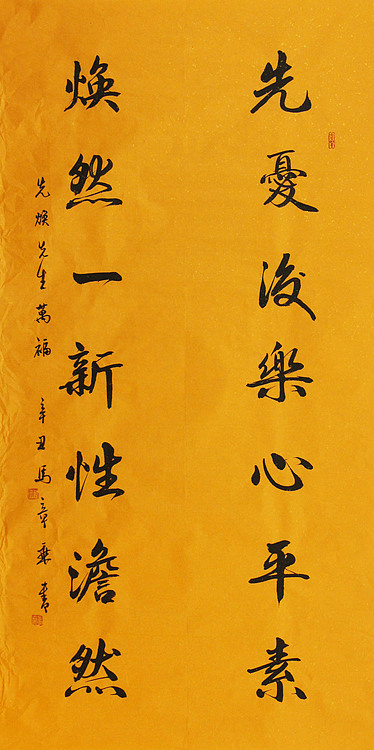 先憂後樂心平素
煥然一新性澹然
先煥先生萬福 辛丑馬章乘書